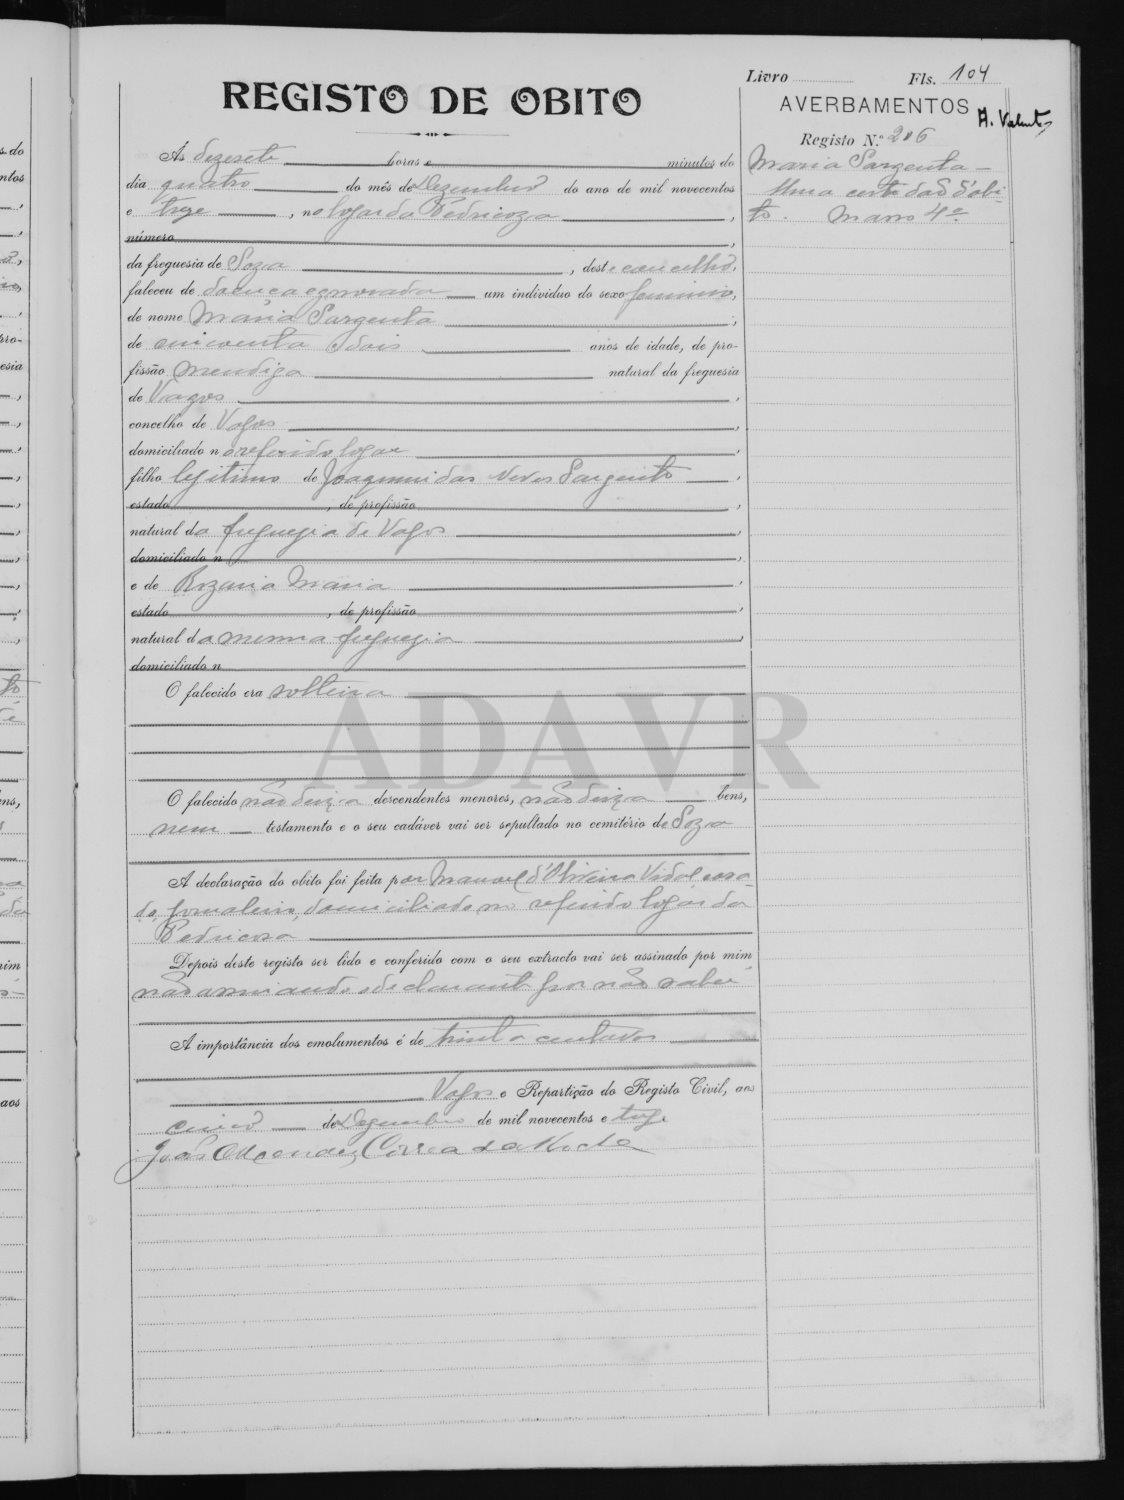 Livro Fls. 104
REGISTO DE OBITO
AVERBAMENTOS
Registo N.º 206
Ás dezesete horas e minutos do
dia quatro do mês de Dezembro do ano de mil novecentos
e treze, no logar da Pedricoza,
número,
da freguesia de Soza, deste concelho,
faleceu de doença egnorada um individuo do sexo feminino,
de nome Maria Sargenta,
de cincoenta e dois anos de idade, de pro-
fissão mendiga natural da freguesia
de Vagos,
concelho de Vagos,
domiciliado no referido logar,
filho legitimo de Joaquim das Neves Sargento,
estado, de profissão,
natural da freguezia de Vagos,
domiciliado n,
e de Rozaria Maria,
estado, de profissão,
natural da mesma freguezia,
domiciliado n
O falecido era solteira
O falecido não deixa descendentes menores, não deixa bens,
nem testamento e o seu cadáver vai ser sepultado no cemitério de Soza
A declaração do obito foi feita por Manuel d'Oliveira Vidal casa-
do, jornaleiro, domiciliado no referido logar da
Pedricosa
Depois deste registo ser lido e conferido com o seu extracto vai ser assinado por mim
não assinando o declarante por não saber
A importância dos emolumentos é de trinta centavos
Vagos e Repartição do Registo Civil, aos
cinco de Dezembro de mil novecentos e treze
Maria Sargenta -
Uma certidão d'obi-
to.
ADAVR